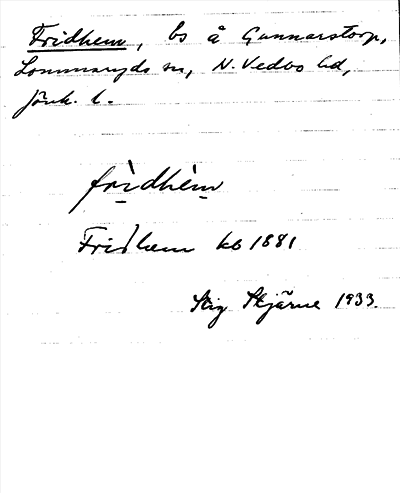 Fridhem, bs å Gunnarstorp,
Lommaryds sn, N. Vedbo hd,
Jönk. l.
frìdhèm
Fridhem kb 1881
Stig Skjärne 1933.